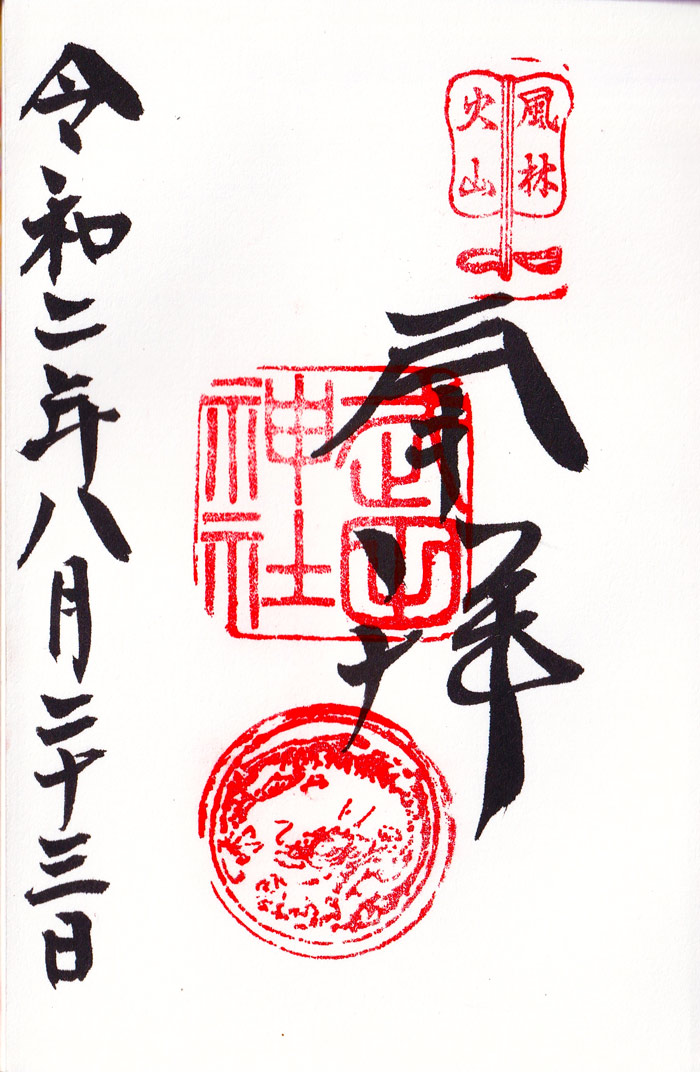 風林
火山
奉拝
武田
神社
令和二年八月二十三日